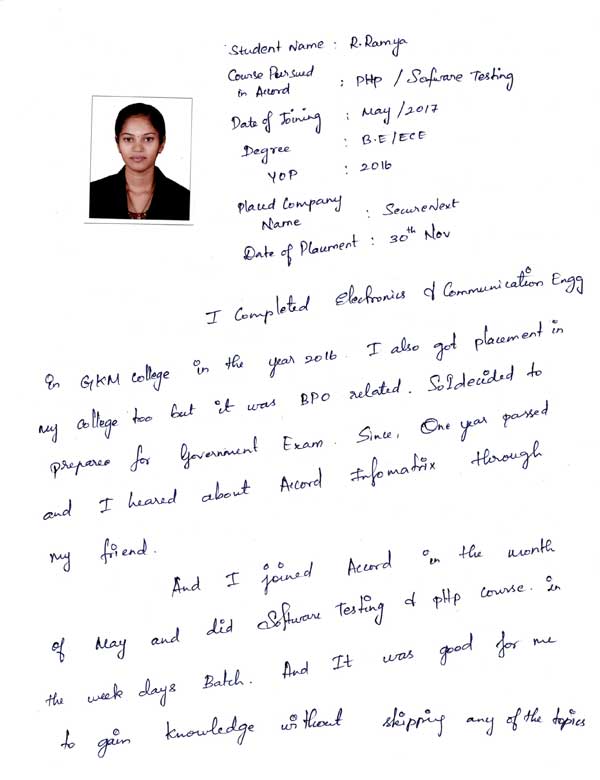 Student Name : R.Ramya
Course Pursued
in Accord : PHP / Sofware Testing
Date of Joining : May / 2017
Degree : B.E / ECE
YOP : 2016
Placed Company
Name : SecureNext
Date of Placement : 30th Nov
I Completed Electronics & Communication Engg
In GKM college in the year 2016. I also got placement in
my college too but it was BPO related. So I decided to
prepare for Government Exam. Since, One year passed
and I heared about Accord Infomatrix through
my friend.
And I joined Accord in the month
of May and did Software Testing & PHP course. in
the week days Batch. And It was good for me
to gain knowledge without skipping any of the topics